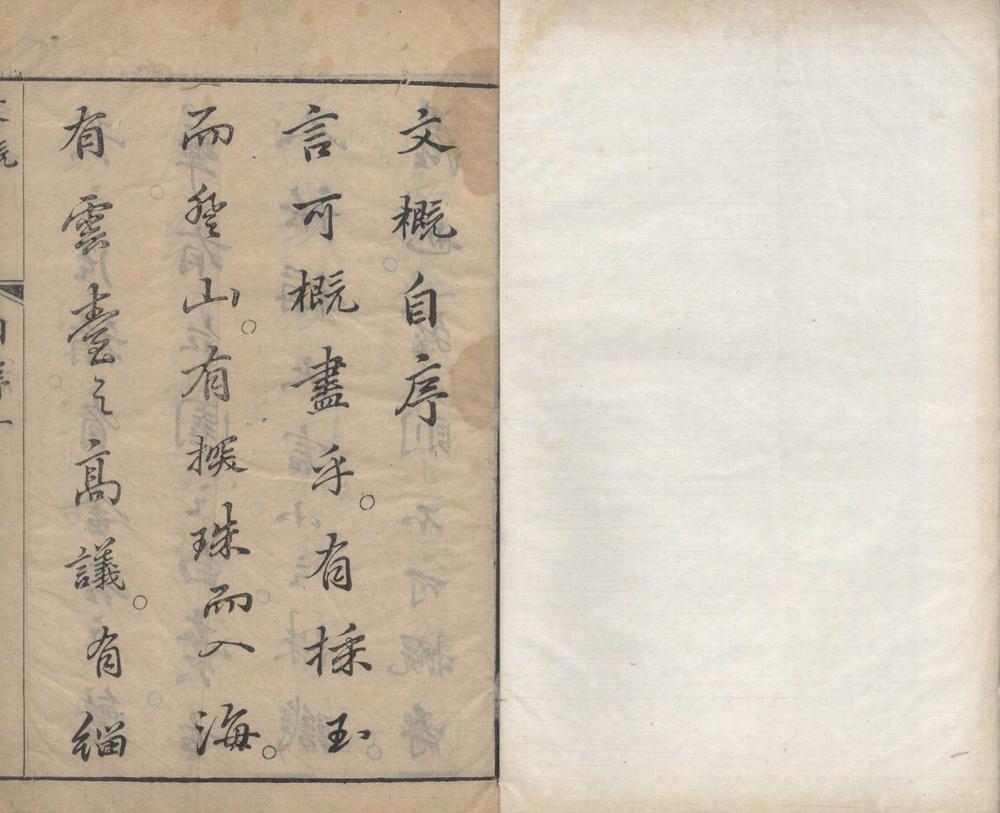 文概自序
言可概盡乎。有採玉
而登山。有探珠而入海。
有雲臺之高議。有緇
文概
自序一